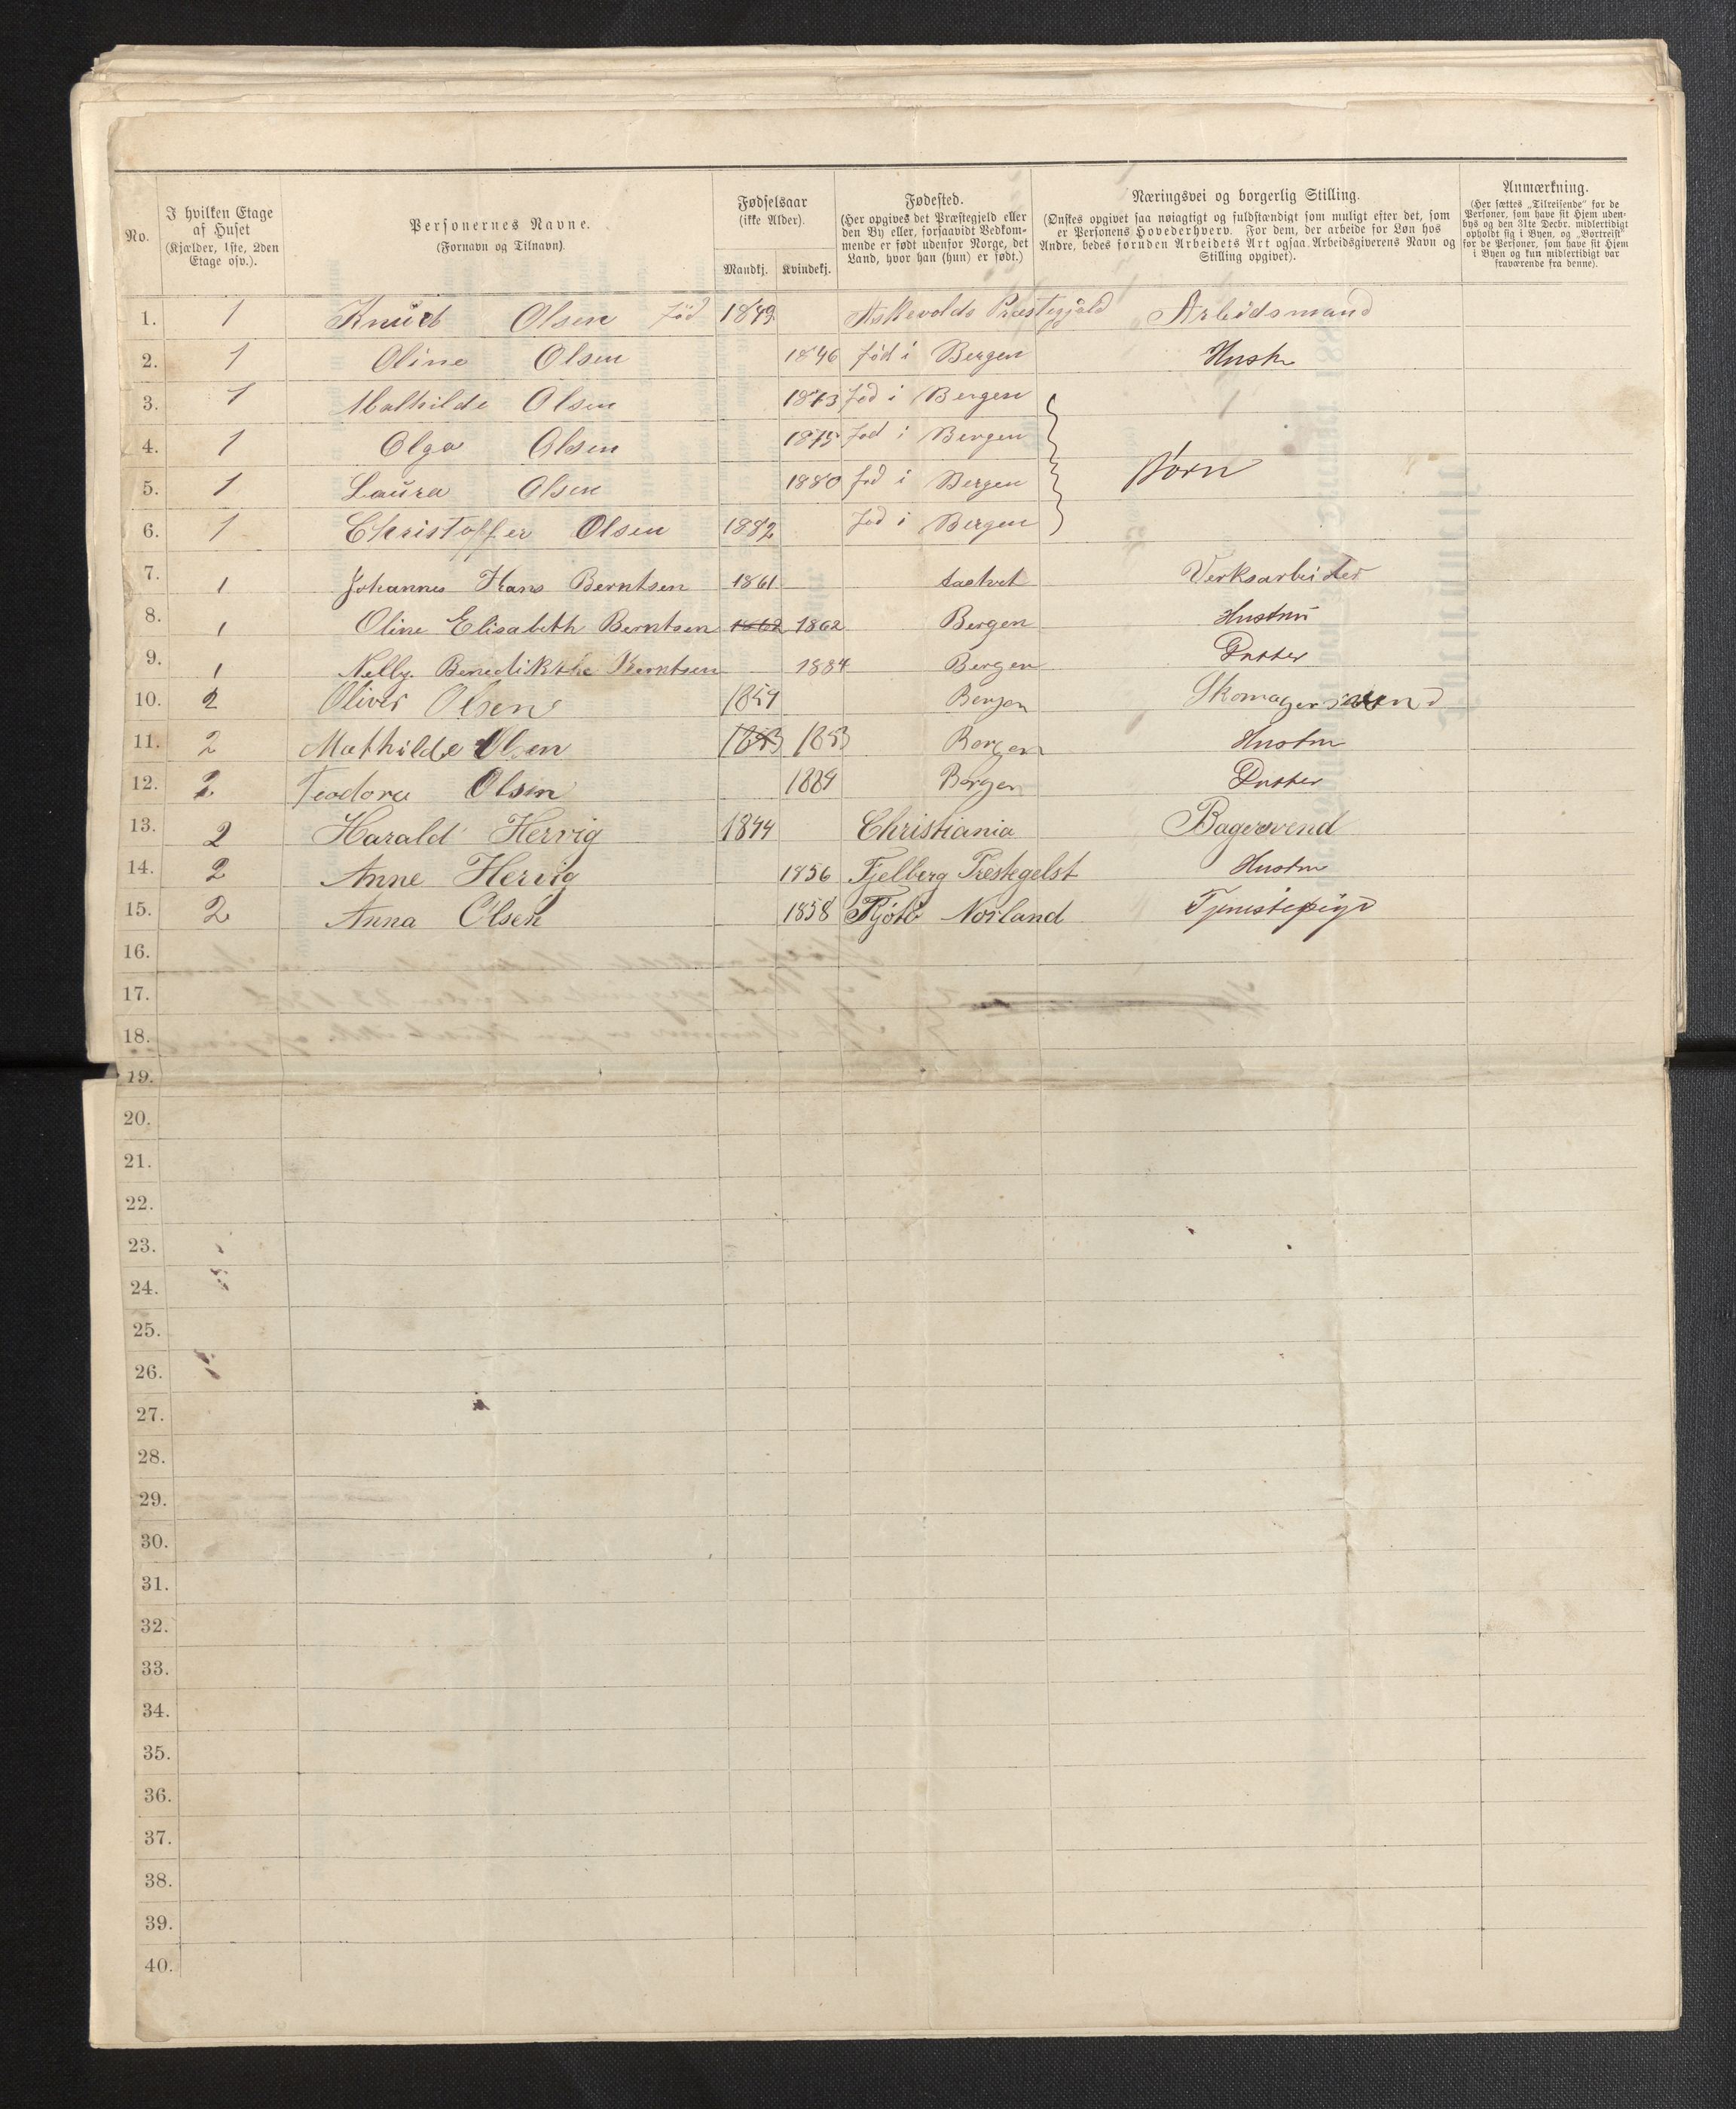 No.
I hvilken Etage af Huset (Kjælder, 1ste, 2den Etage osv.).
Personernes Navne. (Fornavn og Tilnavn)
Fødselsaar (ikke Alder). Mandkj. Kvindekj.
Fødested. (Her opgives det Præstegjeld eller den By eller, forsaavidt Vedkommende er født udenfor Norge, det Land, hvor han (hun) er født.)
Næringsvei og borgerlig Stilling. (Ønskes opgivet saa nøiagtigt og fuldstændigt som muligt efter det, som er Personens Hovederhverv. For dem, der arbeide for Løn hos Andre, bedes foruden Arbeidets Art ogsaa Arbeidsgiverens Navn og Stilling opgivet).
Anmærkning. (Her sættes „Tilreisende" for de Personer, som have sit Hjem udenbys og den 31te Decbr. midlertidigt opholdt sig i Byen, og „Bortreist" for de Personer, som have sit Hjem i Byen og kun midlertidigt var fraværende fra denne).
1. 1 Knud Olsen fød 1849 Askevolds Præstegjäld Arbidsmand
2. 1 Oline Olsen 1846 fød i Bergen Hustr
3. 1 Mathilde Olsen 1873 fød i Bergen
4. 1 Olga Olsen 1875 fød i Bergen
5. 1 Laura Olsen 1880 fød i Bergen Børn
6. 1 Christoffer Olsen 1882 fød i Bergen
7. 1 Johannes Hans Berntsen 1861 Verksarbeider
8. 1 Oline Elisabeth Berntsen 1862 1862 Bergen Hustru
9. 1 Nelly Benedikthe Berntsen 1884 Bergen Datter
10. 2 Oliver Olsen 1854 Bergen Skomagersvend
11. 2 Mathilde Olsen 1853 1853 Bergen Hustru
12. 2 Teodora Olsen 1884 Bergen Datter
13. 2 Harald Hervig 1844 Christiania Bagersvend
14. 2 Anne Hervig 1856 Fjelberg Prestegelst Hustru
15. 2 Anna Olsen 1858 Norland Tjenistepige
16.
17.
18.
19.
20.
21.
22.
23.
24.
25.
26.
27.
28.
29.
30.
31.
32.
33.
34.
35.
36.
37.
38.
39.
40.